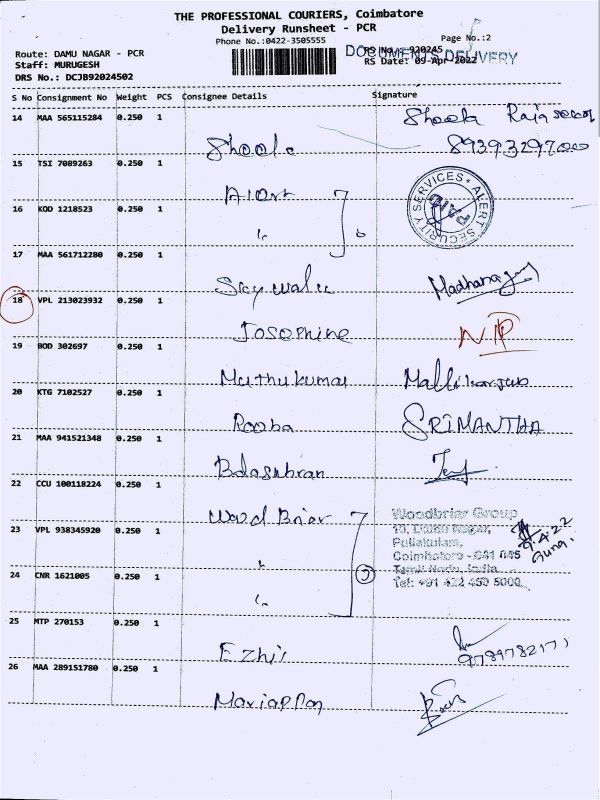 THE PROFESSIONAL COURIERS, Coimbatore
Delivery Runsheet - PCR
Phone No.:0422-3505555
Page No.:2
DOCUMENTS DELIVERY
Route: DAMU NAGAR - PCR
RS No.: 920245
Staff: MURUGESH
RS Date: 09-Apr-2022
DRS No.: DCJB92024502
S No Consignment No Weight PCS Consignee Details Signature
14 MAA 565115284 0.250 1
Shoola
8939329700
15 TSI 7089263 0.250 1
Alert
ALERT SECURITY SERVICES
16 KOD 1218523 0.250 1
17 MAA 561712280 0.250 1
18 VPL 213023932 0.250 1
Josephine
19 BOD 302697 0.250 1
Muthukumar
20 KTG 7102527 0.250 1
Rooba SRIMANTHA
21 MAA 941521348 0.250 1
Balasubran
22 CCU 100118224 0.250 1
Wood Briar
Woodbriar Group
23 VPL 938345920 0.250 1
Coimbatore - 641 045
Tamil Nadu, India
Tel: +91 422 450 5000
9.4.22
Guna.
24 CNR 1621005 0.250 1
25 MTP 270153 0.250 1
Ezhil 9789782171
26 MAA 289151780 0.250 1
Mariappan